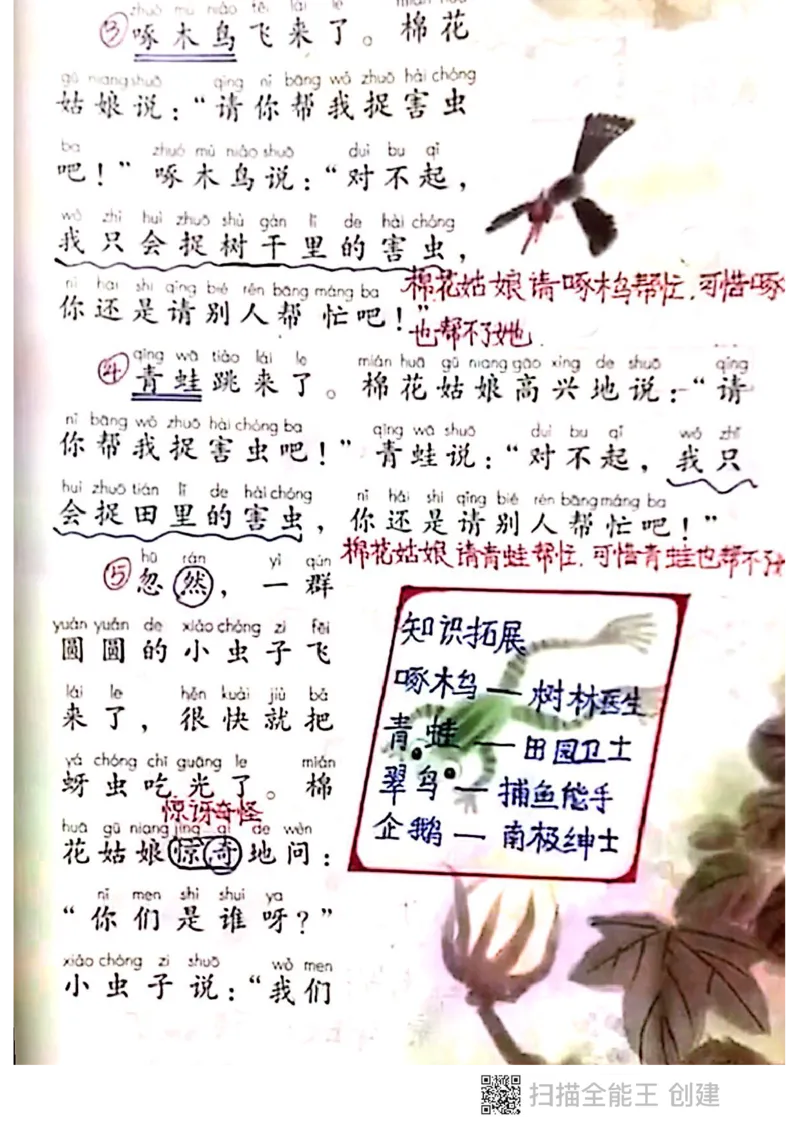 zhuó mù niǎo fēi lái le mián huā
③啄木鸟飞来了。棉花
gū niang shuō qǐng nǐ bāng wǒ zhuō hài chóng
姑娘说：“请你帮我捉害虫
ba zhuó mù niǎo shuō duì bu qǐ
吧！”啄木鸟说：“对不起，
wǒ zhǐ huì zhuō shù gàn lǐ de hài chóng
我只会捉树干里的害虫，
nǐ hái shi qǐng bié rén bāng máng ba
你还是请别人帮忙吧！”
棉花姑娘请啄木鸟帮忙.可惜啄
也帮不了她.
qīng wā tiào lái le mián huā gū niang gāo xìng de shuō qǐng
④青蛙跳来了。棉花姑娘高兴地说：“请
nǐ bāng wǒ zhuō hài chóng ba qīng wā shuō duì bu qǐ wǒ zhǐ
你帮我捉害虫吧！”青蛙说：“对不起，我只
huì zhuō tián lǐ de hài chóng nǐ hái shi qǐng bié rén bāng máng ba
会捉田里的害虫，你还是请别人帮忙吧！”
棉花姑娘请青蛙帮忙.可惜青蛙也帮不了
hū rán yì qún
⑤忽然，一群
yuán yuán de xiǎo chóng zi fēi
圆圆的小虫子飞
lái le hěn kuài jiù bǎ
来了，很快就把
yá chóng chī guāng le mián
蚜虫吃光了。棉
惊讶奇怪
huā gū niang jīng qí de wèn
花姑娘惊奇地问：
nǐ men shì shuí ya
“你们是谁呀？”
xiǎo chóng zi shuō wǒ men
小虫子说：“我们
知识拓展
啄木鸟—树林医生
青蛙—田园卫士
翠鸟—捕鱼能手
企鹅—南极绅士
扫描全能王 创建